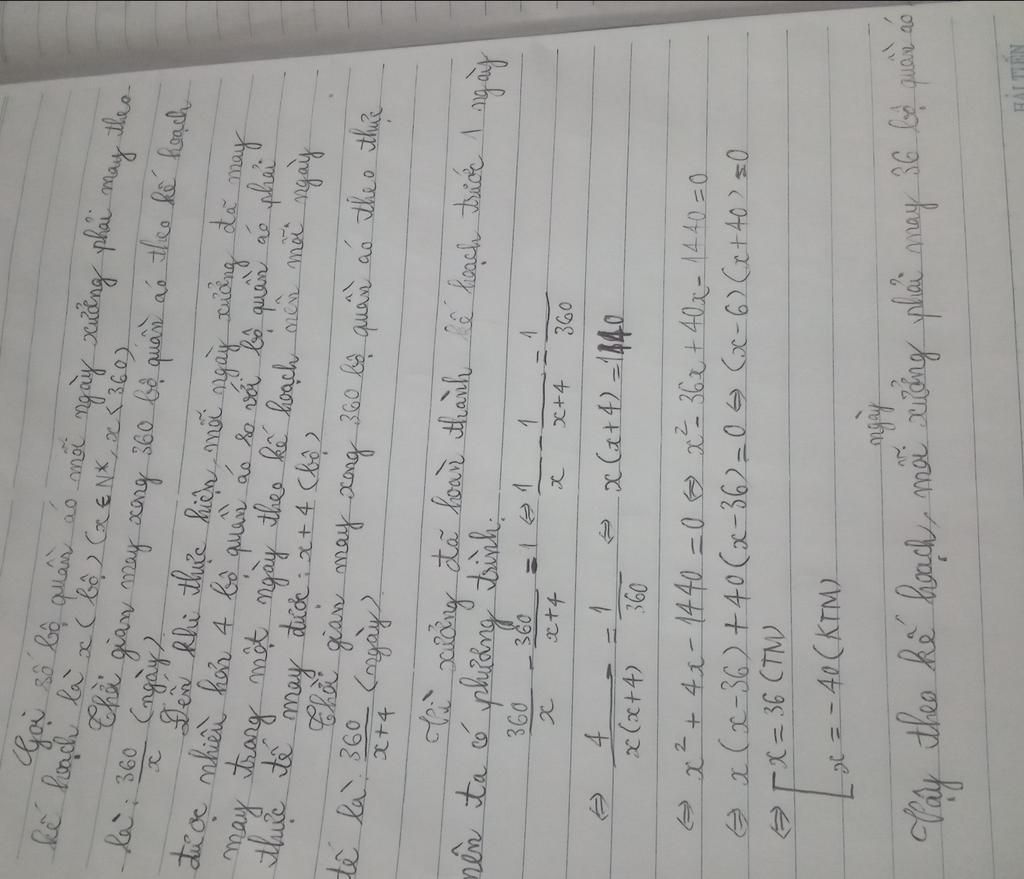 Gọi số bộ quần áo mỗi ngày xưởng phải may theo
kế hoạch là x (bộ) (x ∈ N*, x < 360)
Thời gian may xong 360 bộ quần áo theo kế hoạch
là: 360/x (ngày)
Đến khi thực hiện, mỗi ngày xưởng đã may
được nhiều hơn 4 bộ quần áo so với bộ quần áo phải
may trong một ngày theo kế hoạch nên mỗi ngày
thực tế may được: x+4 (bộ)
Thời gian may xong 360 bộ quần áo theo thực
tế là: 360/x+4 (ngày)
Vì xưởng đã hoàn thành kế hoạch trước 1 ngày
nên ta có phương trình:
360/x - 360/x+4 = 1 ⇔ 1/x - 1/x+4 = 1/360
⇔ 4/x(x+4) = 1/360 ⇔ x(x+4) = 1440
⇔ x² + 4x - 1440 = 0 ⇔ x² - 36x + 40x - 1440 = 0
⇔ x(x-36) + 40(x-36) = 0 ⇔ (x-6)(x+40) = 0
⇔ [x = 36 (TM)
x = -40 (KTM)
Vậy theo kế hoạch, mỗi ngày xưởng phải may 36 bộ quần áo
HẢI TIẾN